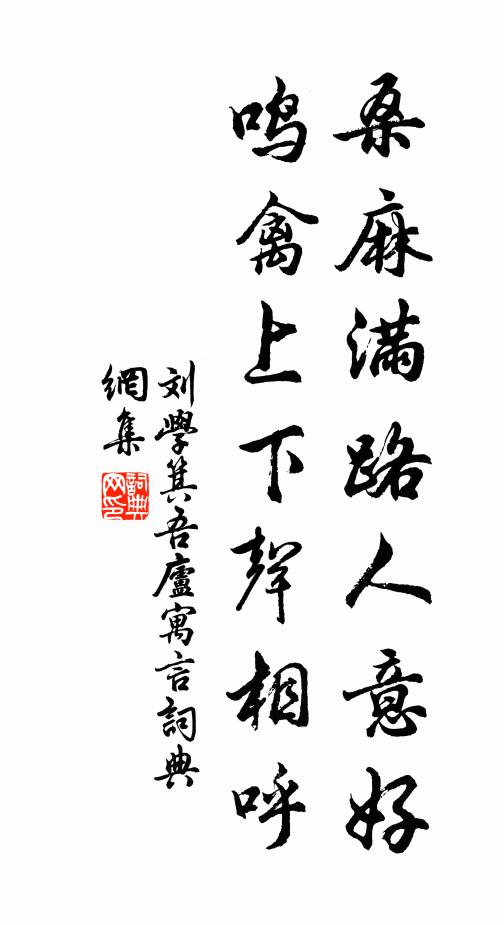 桑麻满路人意好
鸣禽上下聲相呼
刘學箕吾廬寓言詞典
網集
詞典
网印